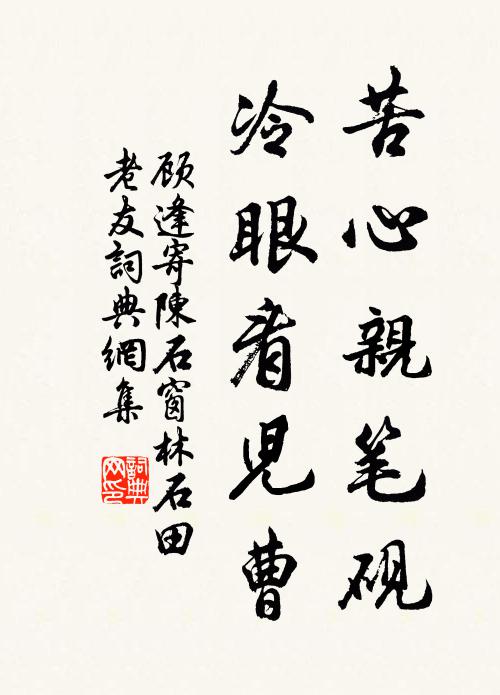 苦心親笔硯
冷眼看兒曹
顾逢寄陳石窗林石田
老友詞典網集
詞典网印